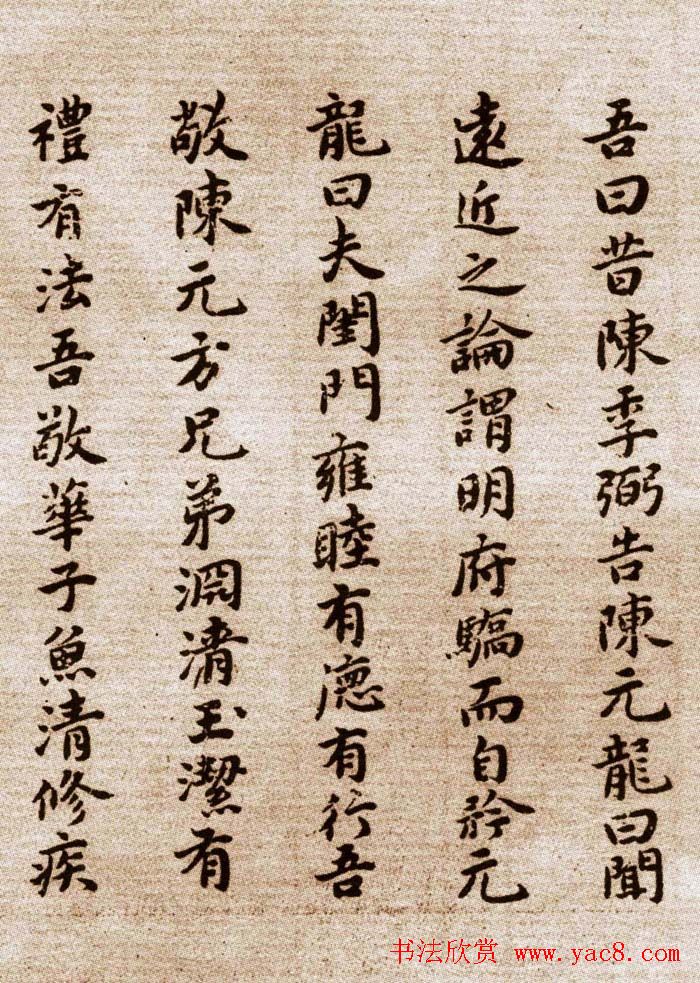 吾曰昔陳季弼告陳元龍曰聞
遠近之論謂明府驕而自矜元
龍曰夫閨門雍睦有德有行吾
敬陳元方兄弟淵清玉潔有
禮有法吾敬華子魚清修疾
书法欣赏 www.yac8.com